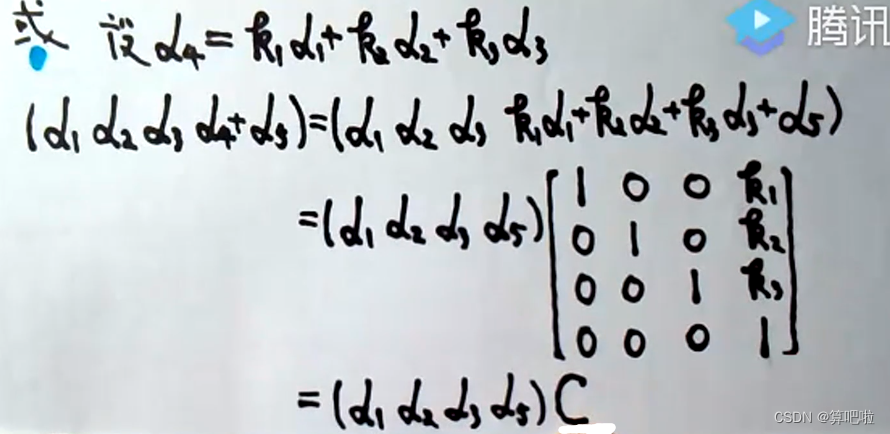 或 设 α₄ = k₁α₁+k₂α₂+k₃α₃
腾讯
(α₁ α₂ α₃ α₄+α₅)=(α₁ α₂ α₃ k₁α₁+k₂α₂+k₃α₃+α₅)
=(α₁ α₂ α₃ α₅)[1 0 0 k₁
0 1 0 k₂
0 0 1 k₃
0 0 0 1]
=(α₁ α₂ α₃ α₅)C
CSDN @算吧啦